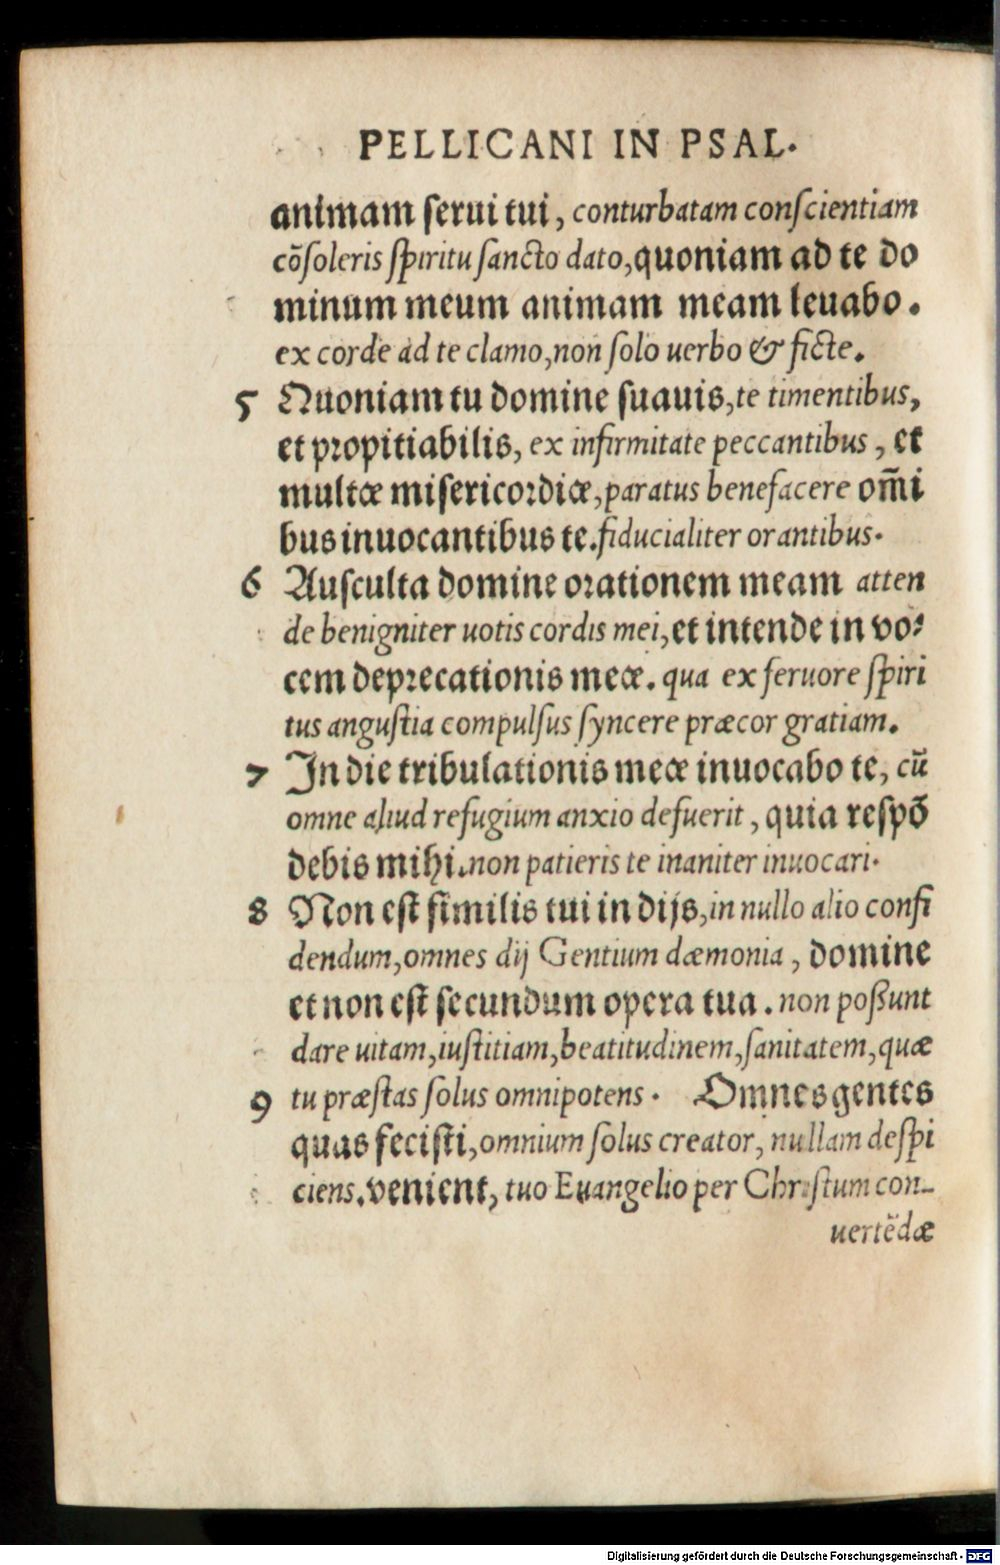 PELLICANI IN PSAL.
animam ſerui tui, conturbatam conſcientiam
cōſoleris ſpiritu ſancto dato, quoniam ad te do
minum meum animam meam leuabo.
ex corde ad te clamo, non ſolo uerbo & ficte.
5 Quoniam tu domine ſuauis, te timentibus,
et propitiabilis, ex infirmitate peccantibus, et
multæ miſericordiæ, paratus benefacere om̄i
bus inuocantibus te. fiducialiter orantibus.
6 Auſculta domine orationem meam atten
de benigniter uotis cordis mei, et intende in vo⸗
cem deprecationis meæ. qua ex feruore ſpiri
tus anguſtia compulſus ſyncere præcor gratiam.
7 In die tribulationis meæ inuocabo te, cū
omne aliud refugium anxio defuerit, quia reſpō
debis mihi. non patieris te inaniter inuocari.
8 Non eſt ſimilis tui in dijs, in nullo alio confi
dendum, omnes dij Gentium dæmonia, domine
et non eſt ſecundum opera tua. non poßunt
dare uitam, iuſtitiam, beatitudinem, ſanitatem, quæ
9 tu præſtas ſolus omnipotens. Omnes gentes
quas feciſti, omnium ſolus creator, nullam deſpi
ciens. venient, tuo Euangelio per Chriſtum con-
uertēdæ
Digitalisierung gefördert durch die Deutsche Forschungsgemeinschaft - DFG